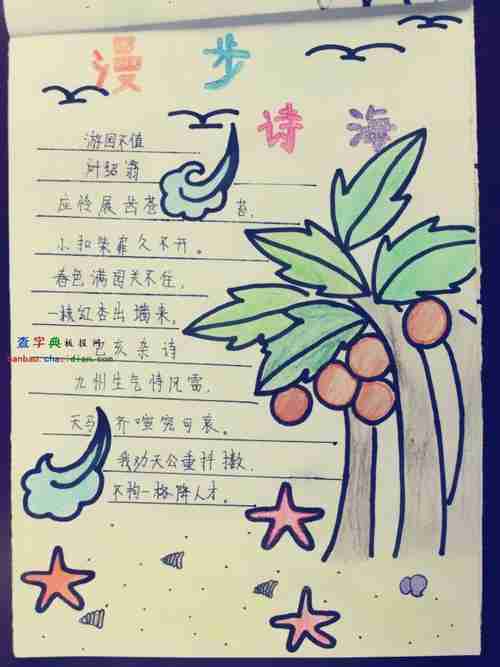 漫 步
诗 海
游园不值
叶绍翁
应怜展齿苍 苔,
小扣柴扉久不开。
春色满园关不住,
一枝红杏出墙来,
查字典板报网
banbao.chazidian.com
己亥杂诗
九州生气恃风雷,
天马齐喧究可哀。
我劝天公重抖擞,
不拘一格降人才。